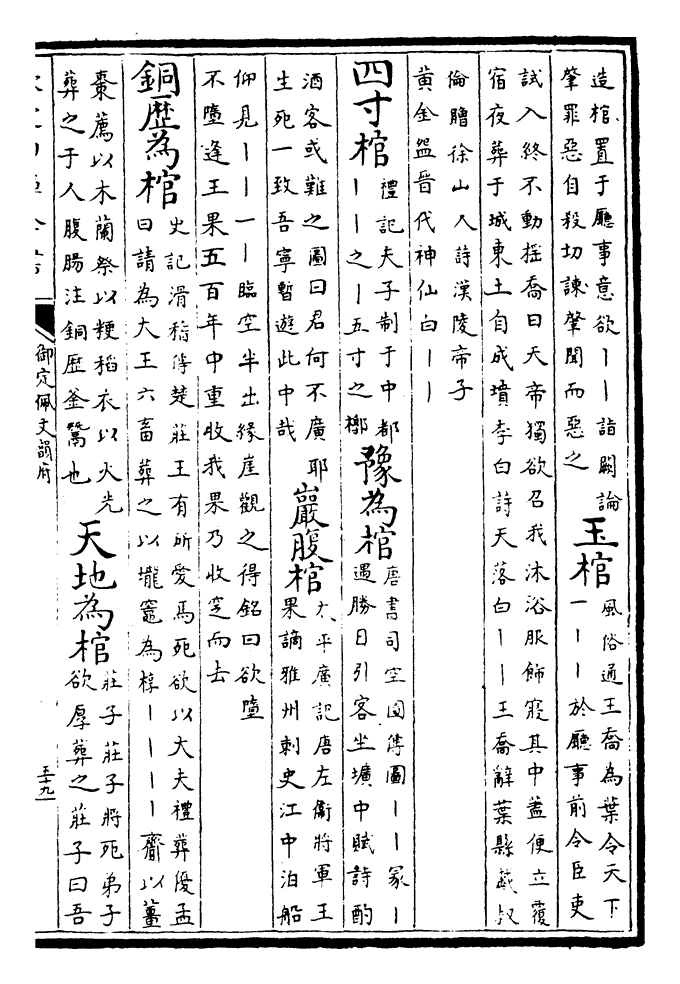 造棺置于廳事意欲丨丨詣闕論
肇罪惡自殺切諫肇聞而惡之
玉棺
風俗通王喬為葉令天下
一丨丨於廳事前令臣吏
試入終不動揺喬曰天帝獨欲召我沐浴服飾寢其中蓋便立覆
宿夜葬于城東土自成墳李白詩天落白丨丨王喬辭葉縣戴叔
倫贈徐山人詩漢陵帝子
黄金盌晉代神仙白丨丨
四寸棺
禮記夫子制于中都
丨丨之丨五寸之槨
豫為棺
唐書司空圖傳圖丨丨冢丨
遇勝日引客坐壙中賦詩酌
酒客或難之圖曰君何不廣耶
生死一致吾寧暫遊此中哉
巖腹棺
太平廣記唐左衞將軍王
果謫雅州刺史江中泊船
仰見丨丨一丨臨空半出緣崖觀之得銘曰欲墮
不墮逢王果五百年中重收我果乃收窆而去
銅歴為棺
史記滑稽傳楚莊王有所愛馬死欲以大夫禮葬優孟
曰請為大王六畜葬之以壠竈為椁丨丨丨丨齎以薑
棗薦以木蘭祭以粳稻衣以火光
葬之于人腹腸注銅歴釜鬵也
天地為棺
莊子莊子將死弟子
欲厚葬之莊子曰吾
御定佩文韻府
五十九